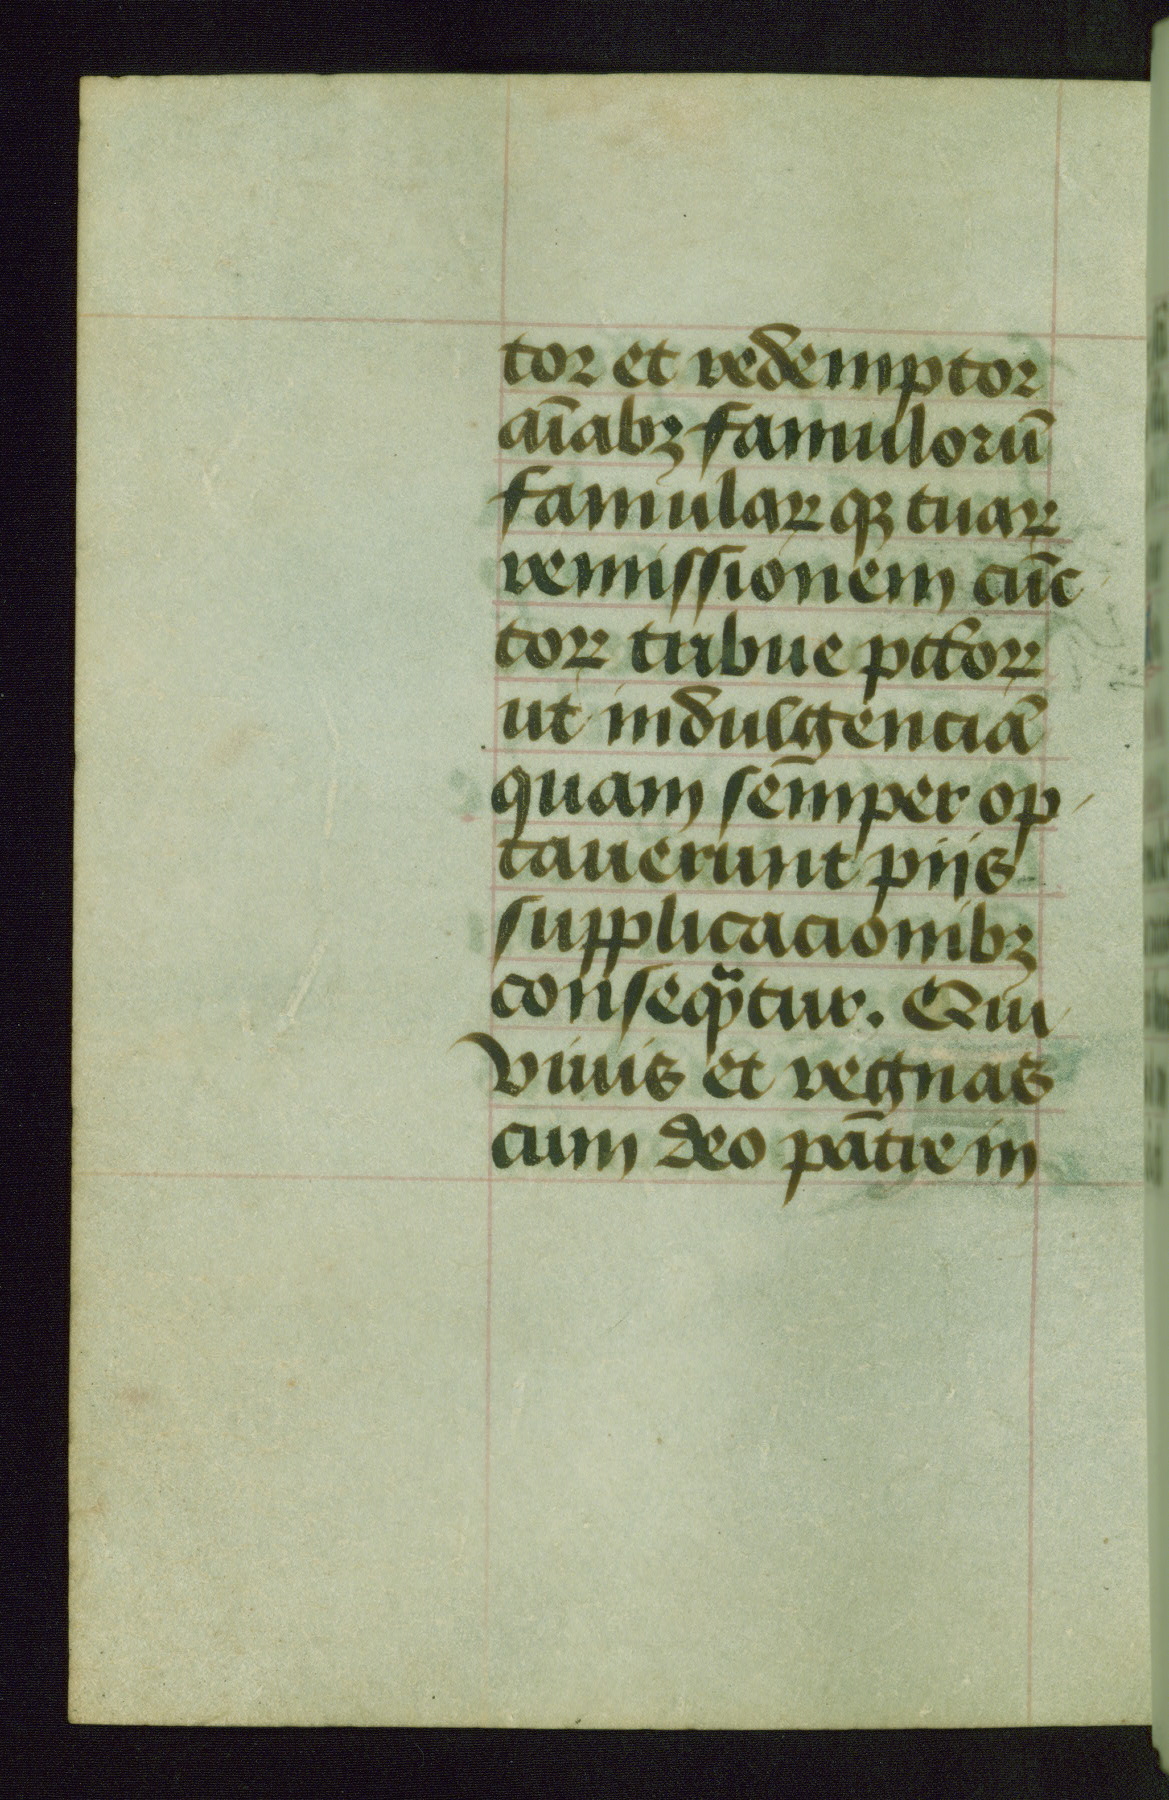 tor et redemptor
aīabꝫ famulorū
famulaꝝ qꝫ tuaꝝ
remissionem cūc
toꝝ tribue pctoꝝ
ut indulgenciā
quam semper op
tauerunt piis
supplicacionibꝫ
consequātur. Qui
viuis et regnas
cum deo patre in